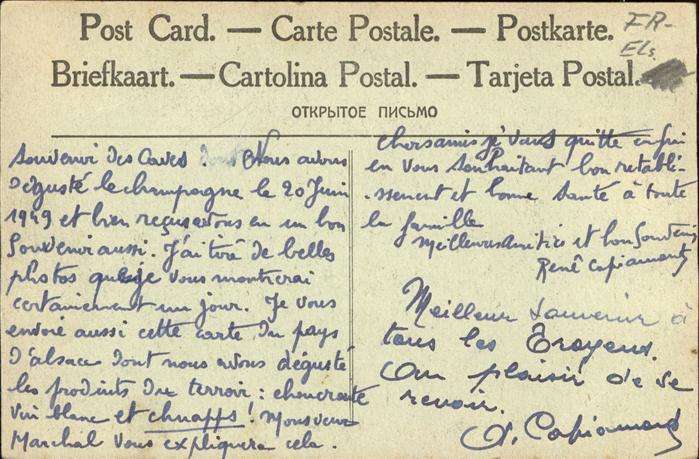 Post Card. — Carte Postale. — Postkarte.
Briefkaart. — Cartolina Postal. — Tarjeta Postal.
ОТКРЫТОЕ ПИСЬМО
FR-
Els.
Souvenir des Caves Nous avons
dégusté le champagne le 20 Juin
1949 et bien reçus en un bon
Souvenir aussi. J'ai tiré de belles
photos que je vous montrerai
certainement un jour. Je vous
envoie aussi cette carte du pays
d'alsace dont nous avons dégusté
les produits du terroir : choucroute
vin blanc et chnapps ! Monsieur
Marchal vous expliquera cela.
chers amis je vous quitte enfin
en vous souhaitant bon rétabli-
ssement et bonne santé à toute
la famille
Meilleures Amitiés et bon Souvenir
René Capiamont
Meilleur souvenir à
tous les Troyens.
Au plaisir de se
revoir.